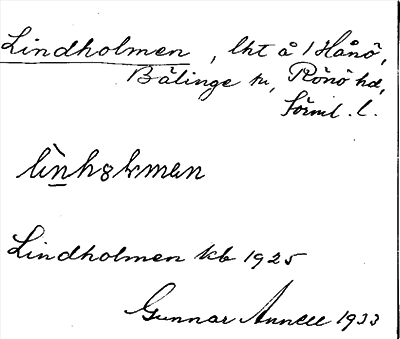 Lindholmen, lht å Hånö,
Bälinge sn, Rönö hd,
Sörml. l.
lìnhɷḷmen
Lindholmen kb 1925
Gunnar Annell 1933